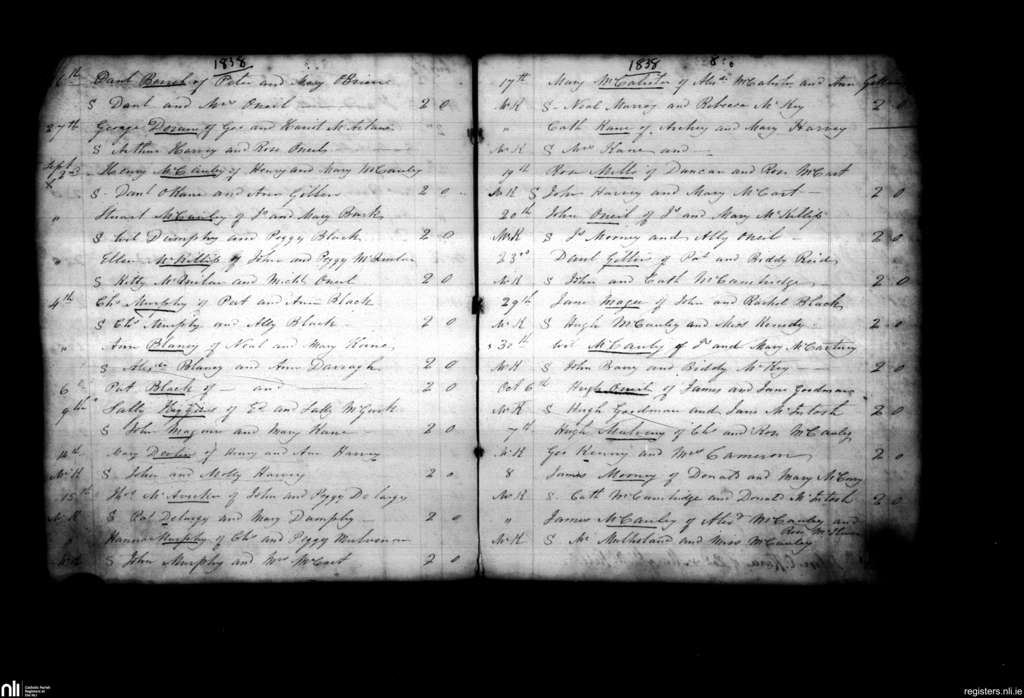 1838
6th Danl Bernah of Peter and Mary OBrien
S Danl and Mrs Oneil 2 0
27th George Doran of Geo and Harriet
S Arthur Harvey and Rose Oneil
Sept 2d Henry McCauley of Henry and Mary McCauley
S Danl OKane and Ann Gillen 2 0
" Stuart McCauley of Js and Mary Burk
S Dumphy and Peggy Black 2 0
Ellen McKillip of John and Peggy
S Kitty and Michl Oneil 2 0
4th Chs Murphy of Pat and Ann Black
S Chs Murphy and Ally Black 2 0
" Ann Blaney of Neal and Mary
S Alexr Blaney and Ann Darragh 2 0
6 Pat Black of — an — 2 0
9th Sally Higgins of Ed and Sally McGurk
S John Maguire and Mary Kane 2 0
14th Mary of Henry and Ann Harvey
McK S John and Molly Harvey 2 0
15th Thos of John and Peggy Delargy
McK S Pat Delargy and Mary Dumphy 2 0
Hanna Murphy of Chs and Peggy Mulvenna
McK S John Murphy and Mrs McCart 2 0
1838
17th Mary McCalister of Alexr McCalister and Ann
McK S Neal Murray and Rebecca McKey 2 0
" Cath Kane of Archey and Mary Harvey
McK S Mrs Kane and —
19th Rose Mills of Duncan and Rose McCart
McK S John Harvey and Mary McCart 2 0
20th John Oneil of Js and Mary McKillip
McK S Js Mooney and Ally Oneil 2 0
23rd Danl Gillin of Pat and Biddy Reid
McK S John and Cath McCambridge 2 0
29th Jane Magee of John and Rachel Black
McK S Hugh McCauley and Miss Kenedy 2 0
30th McCauley of Js and Mary McCartney
McK S John Barry and Biddy McKey 2 0
Oct 6th Hugh Oneil of James and Jane Goodman
McK S Hugh Goodman and Jane McIntosh 2 0
7th Hugh Mulveny of Chs and Rose McCauley
McK Geo Kenny and Mrs Cameron 2 0
8 James Mooney of Donald and Mary
McK S Cath McCambridge and Donald McIntosh 2 0
" James McCauley of Alexr McCauley and
McK S Mr Mulholand and Miss McCauley
nli
Catholic Parish
Registers at
the NLI
registers.nli.ie